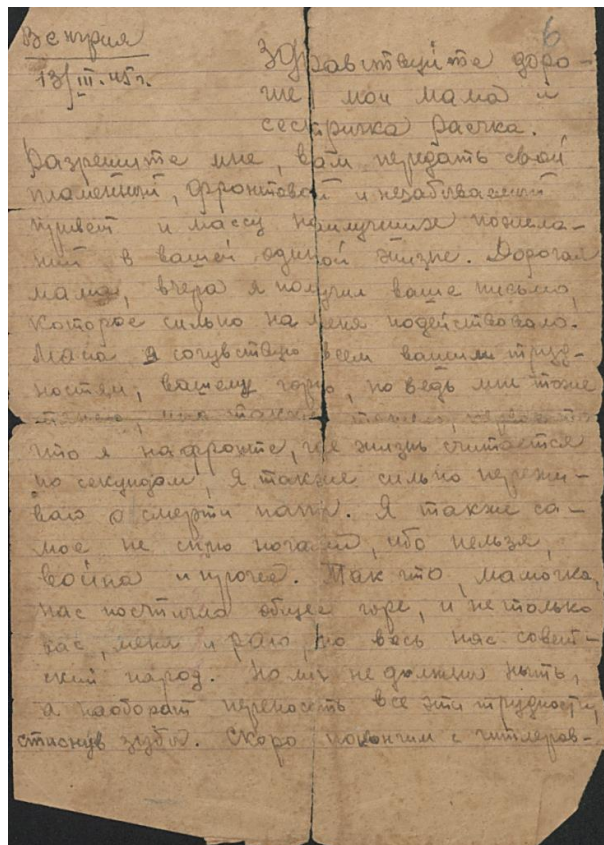 Венгрия
6
13/III.45г.
Здравствуйте доро-
гие мои мама и
сестричка Раечка.
Разрешите мне, вам передать свой
пламенный, фронтовой и незабываемый
привет и массу наилучших пожела-
ний в вашей единой жизне. Дорогая
мама, вчера я получил ваше письмо,
которое сильно на меня подействовало.
Мама, я сочувствую всем вашим труд-
ностям, вашему горю, но ведь мне тоже
также
что я на фронте, где жизнь считается
по секундам, я также сильно пережи-
ваю о смерти папы. Я также са-
мое не сплю ночами, ибо нельзя,
война и прочее. Так что, мамочка,
нас постигло общее горе, и не только
вас, меня и раю, но весь наш совет-
ский народ. Но мы не должны ныть,
а наоборот переносить все эти трудности,
стиснув зубы. Скоро покончим с гитлеров-